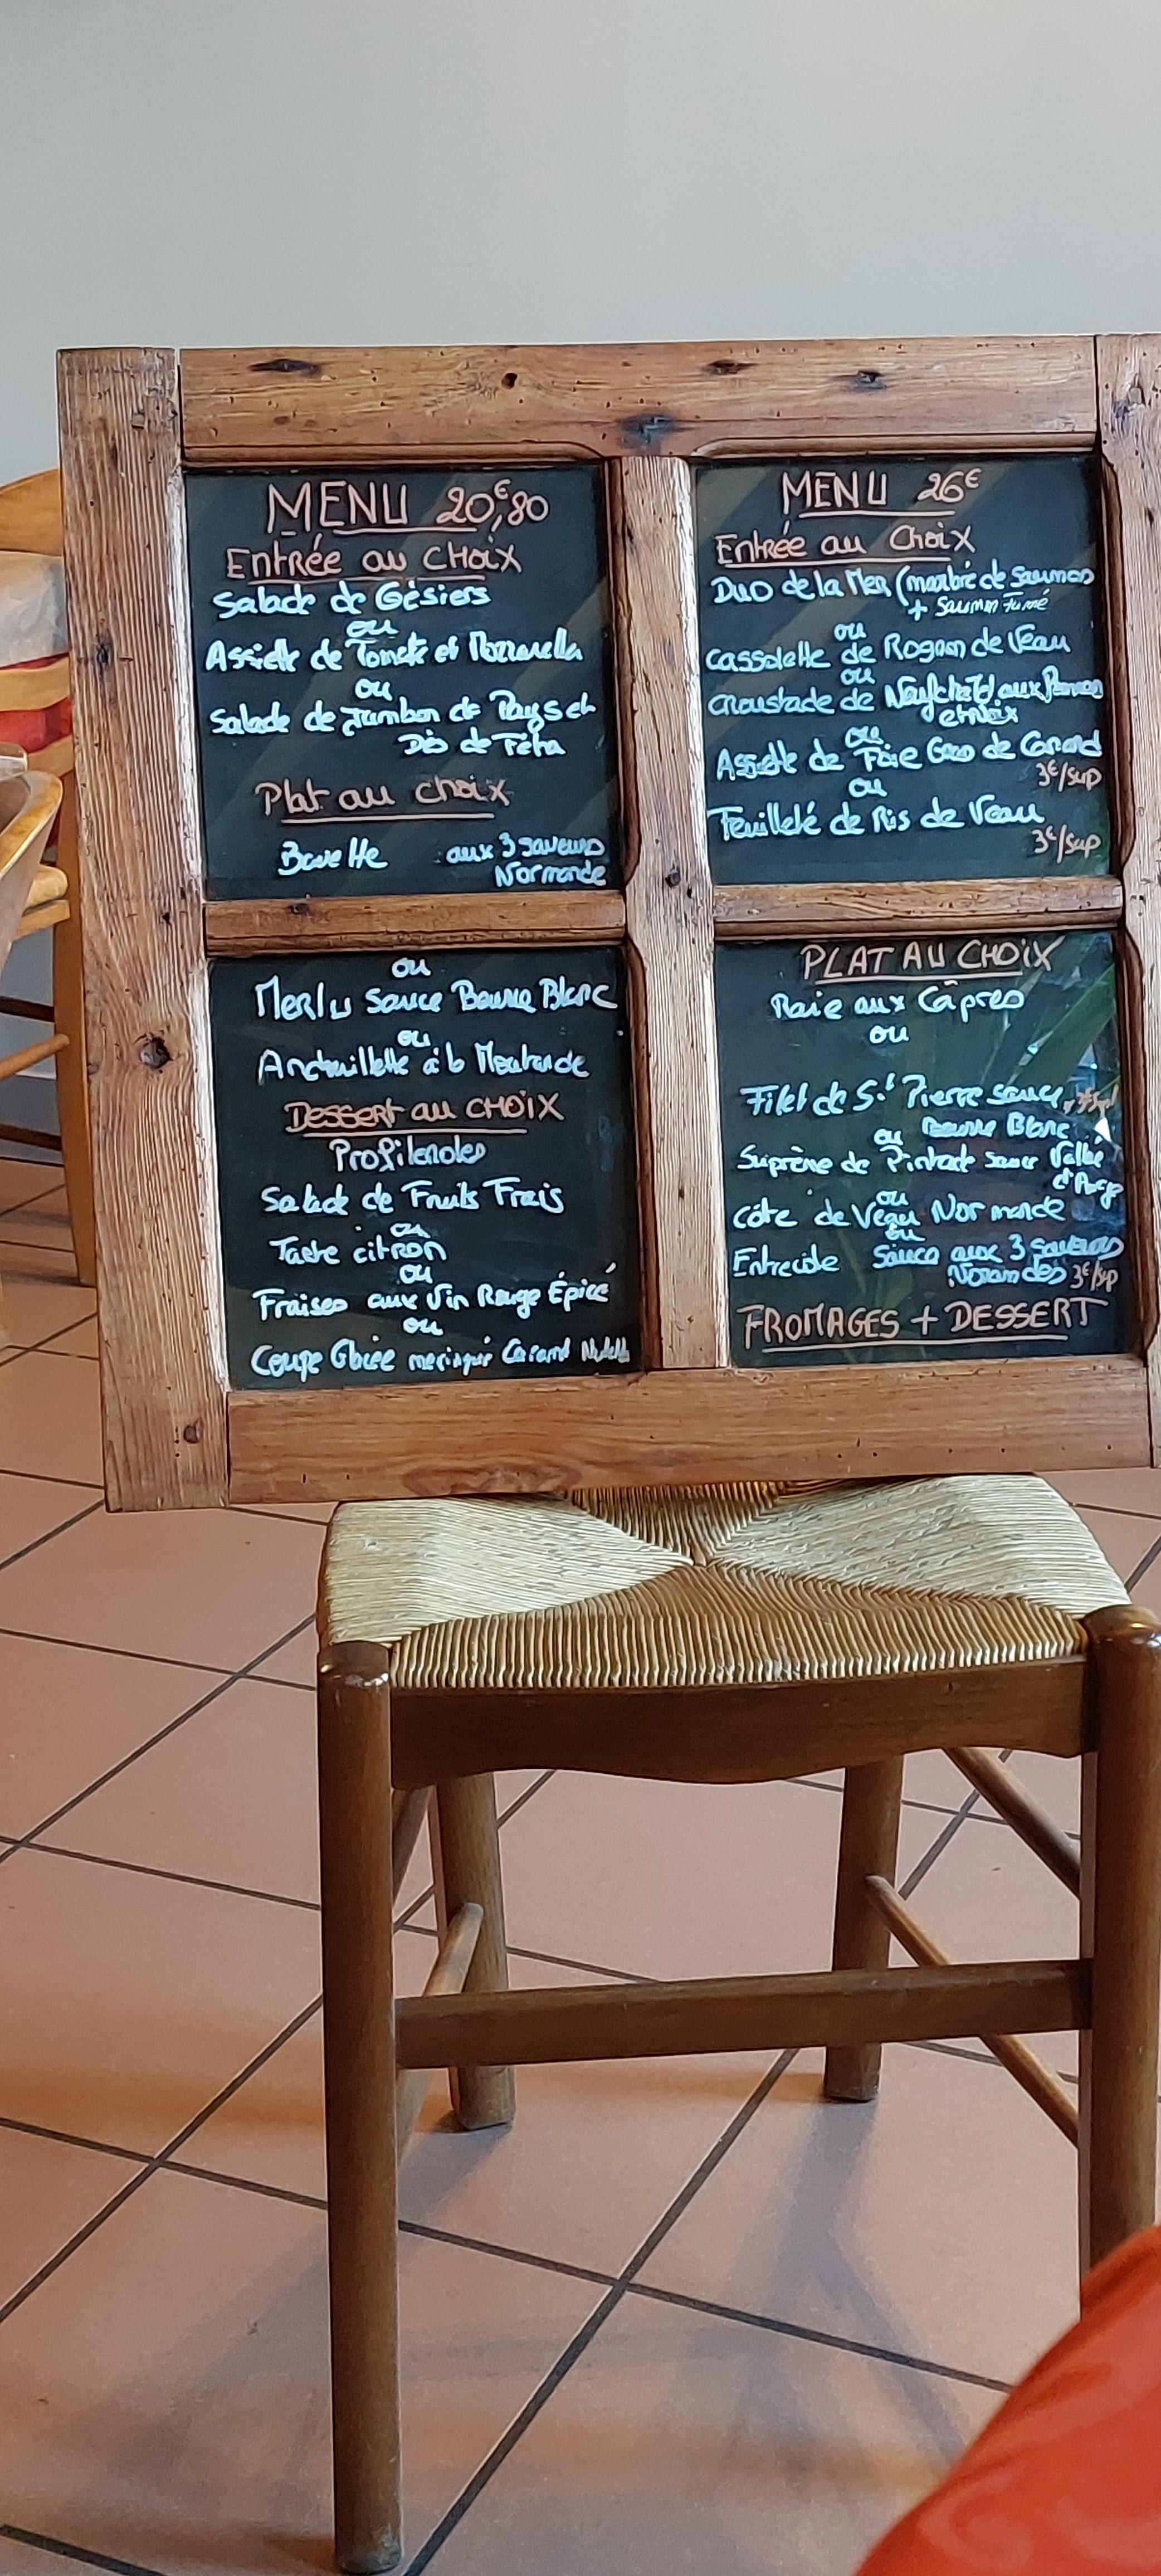 MENU 20€,80
Entrée au CHOIX
Salade de Gésiers
ou
Assiette de Tomate et Mozzarella
ou
Salade de Jambon de Pays et
Dés de Féta
Plat au choix
Bavette aux 3 saveurs
Normande
ou
Merlu Sauce Beurre Blanc
ou
Andouillette à la Moutarde
Dessert au CHOIX
Profiteroles
Salade de Fruits Frais
ou
Tarte citron
ou
Fraises aux Vin Rouge Épicé
ou
Coupe Glacée meringue Caramel Nutella
MENU 26€
Entrée au Choix
Duo de la Mer (marbré de saumon
+ Saumon Fumé
ou
Cassolette de Rognon de Veau
ou
Croustade de Neufchatel aux Pommes
et Noix
ou
Assiette de Foie Gras de Canard
3€/sup
ou
Feuilleté de Ris de Veau
3€/sup
PLAT AU CHOIX
Raie aux Câpres
ou
Filet de St Pierre sauce
ou Beurre Blanc
Suprème de Pintade sauce Vallée
d'Auge
ou
Côte de Veau Normande
ou
Entrecôte Sauce aux 3 saveurs
Normandes 3€/sup
FROMAGES + DESSERT